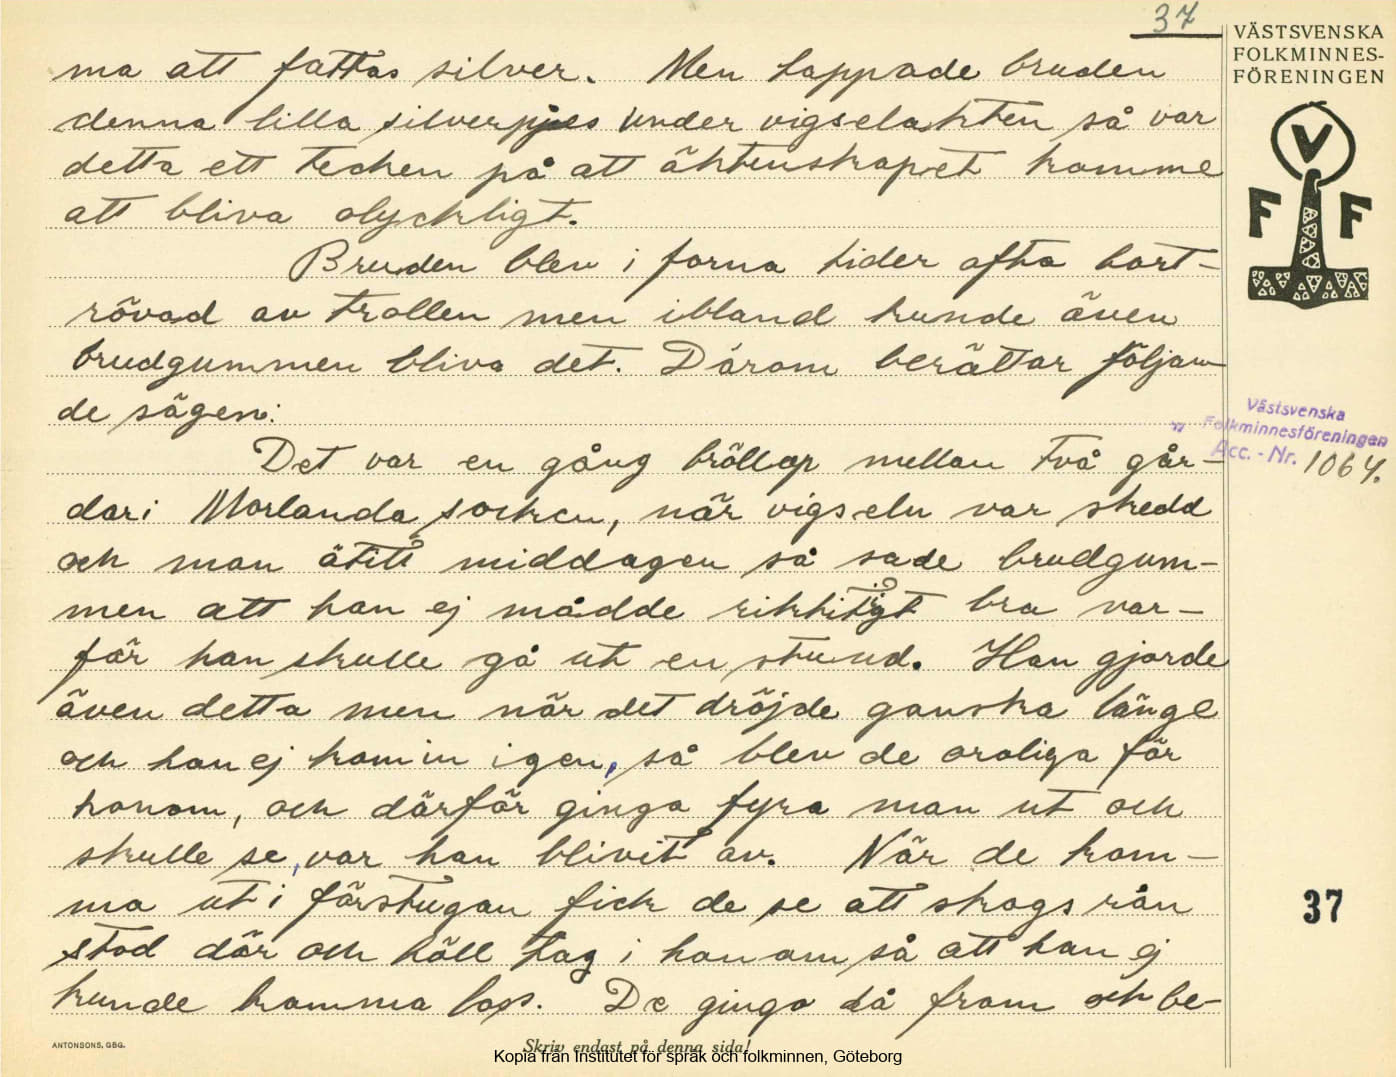 37
VÄSTSVENSKA
FOLKMINNES-
FÖRENINGEN
V
F F
ma att fattas silver. Men tappade bruden
denna lilla silverpjes under vigselakten så var
detta ett tecken på att äktenskapet komme
att bliva olyckligt.
Bruden blev i forna tider ofta bort-
rövad av trollen men ibland kunde även
brudgummen bliva det. Därom berättar följan
de sägen:
Västsvenska
Folkminnesföreningen
Acc. - Nr. 1064.
Det var en gång bröllop mellan två går-
dar i Morlanda socken, när vigseln var skedd
och man ätit middagen så sade brudgum-
men att han ej mådde riktitigt bra var-
för han skulle gå ut en stund. Han gjorde
även detta men när det dröjde ganska länge
och han ej kom in igen, så blev de oroliga för
honom, och därför gingo fyra man ut och
skulle se, var han blivit av. När de kom-
ma ut i förstugan fick de se att skogsrån
37
stod där och höll tag i honom så att han ej
kunde komma loss. De gingo då fram och be-
ANTONSONS, GBG.
Skriv endast på denna sida!
Kopia från Institutet för språk och folkminnen, Göteborg